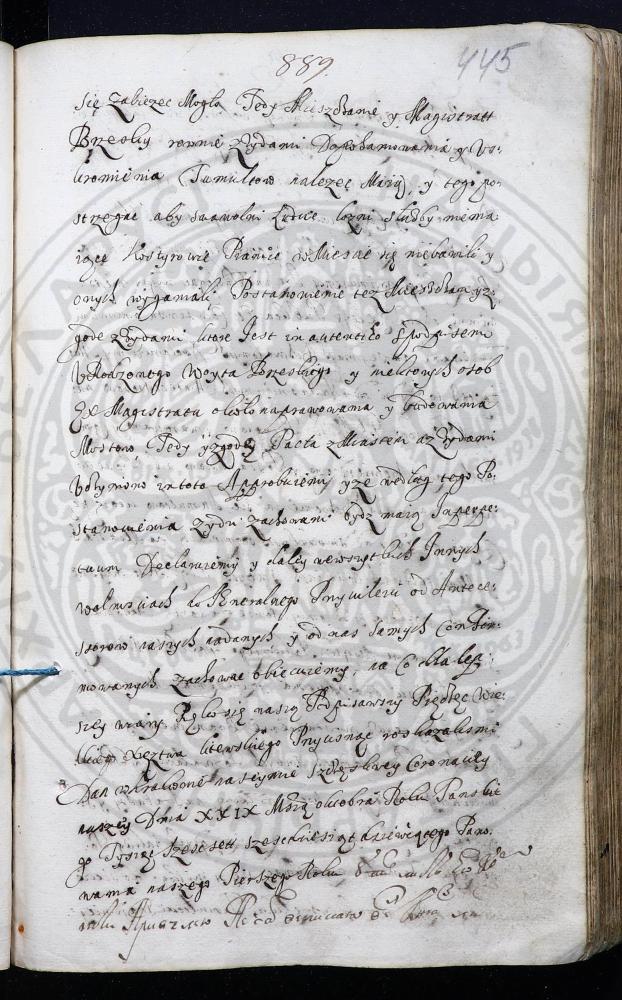 889.
445
się zabiezec Mogło Tedy Mieszczanie y Magistratt
Brzeski rownie z Zydami Do pohamowania y Us-
kromienia Tumultow nalezec Maią, y tego po-
strzegac aby swawolni Ludzie, lozni słuzby niema
iące Kosterowie Pianice w Miescie się niebawili y
onych wyganiali Postanowienie tez Mieszczan y z-
gode z Zydami ktore Jest in autentico z podpisem
Urodzonego Woyta Brzeskiego y niektorych osob
Ex Magistratu około naprawowania y budowania
Mostow Tedy y zgodę Pacta z Miastem a z Zydami
in toto Approbuiemy y ze według tego Po-
stanowienia zydzi zachowani bydz maią Inperpe-
tuum Declaruiemy y daley we wszytkich Innych
wolnosciach Generalnego Przywileiu od Antece-
ssorow naszych nadanych y od nas samych Confir-
mowanych zachowac obiecuiemy, na Co dla lep-
szey wiary Ręką się naszą Podpisawszy Pieczęc Wie-
lkiego Xięztwa Litewskiego Przycisnąc roskazalismi
Dan w Krakowie na seymie szczęsliwey Coronacyey
naszey Dnia XXIX Mśca oktobra Roku Panskie
go Tysiąc szescset szescdziesiąt dziewiątego Pano-
wania naszego Pierszego Roku